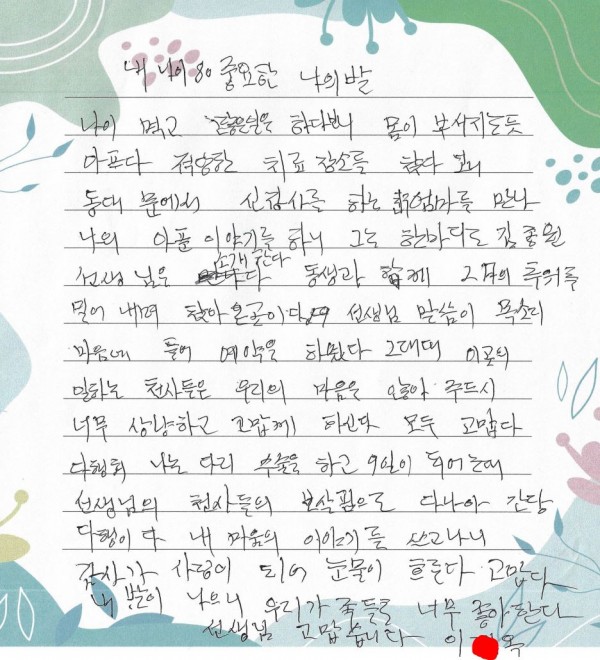 내 나이 80 중요한 나의 발
나이 먹고 힘든일을 하다보니 몸이 부서지는듯
아프다 적당한 치료 장소를 찾다 보니
동대 문에서 신장사를 하는 엄마를 만나
나의 아픈 이야기를 하니 그는 한마디로 김종원
선생님은 소개 한다 동생과 함께 2月의 추위를
밀어 내며 찾아 온곳이다 선생님 말씀이 목소리
마음에 들어 예약을 하였다 그때에 이곳의
일하는 천사들은 우리의 마음을 녹여 주드시
너무 상냥하고 고맙게 하신다 모두 고맙다
다행회 나는 다리 수술을 하고 9일이 되어는데
선생님의 천사들의 보살핌으로 다나아 간당
다행이다 내 마음의 이야기를 쓰고나니
감사가 사랑이 되어 눈물이 흐른다 고맙다
내 발이 나으니 우리가 족들을 너무 좋아한다
선생님 고맙습니다 이 옥